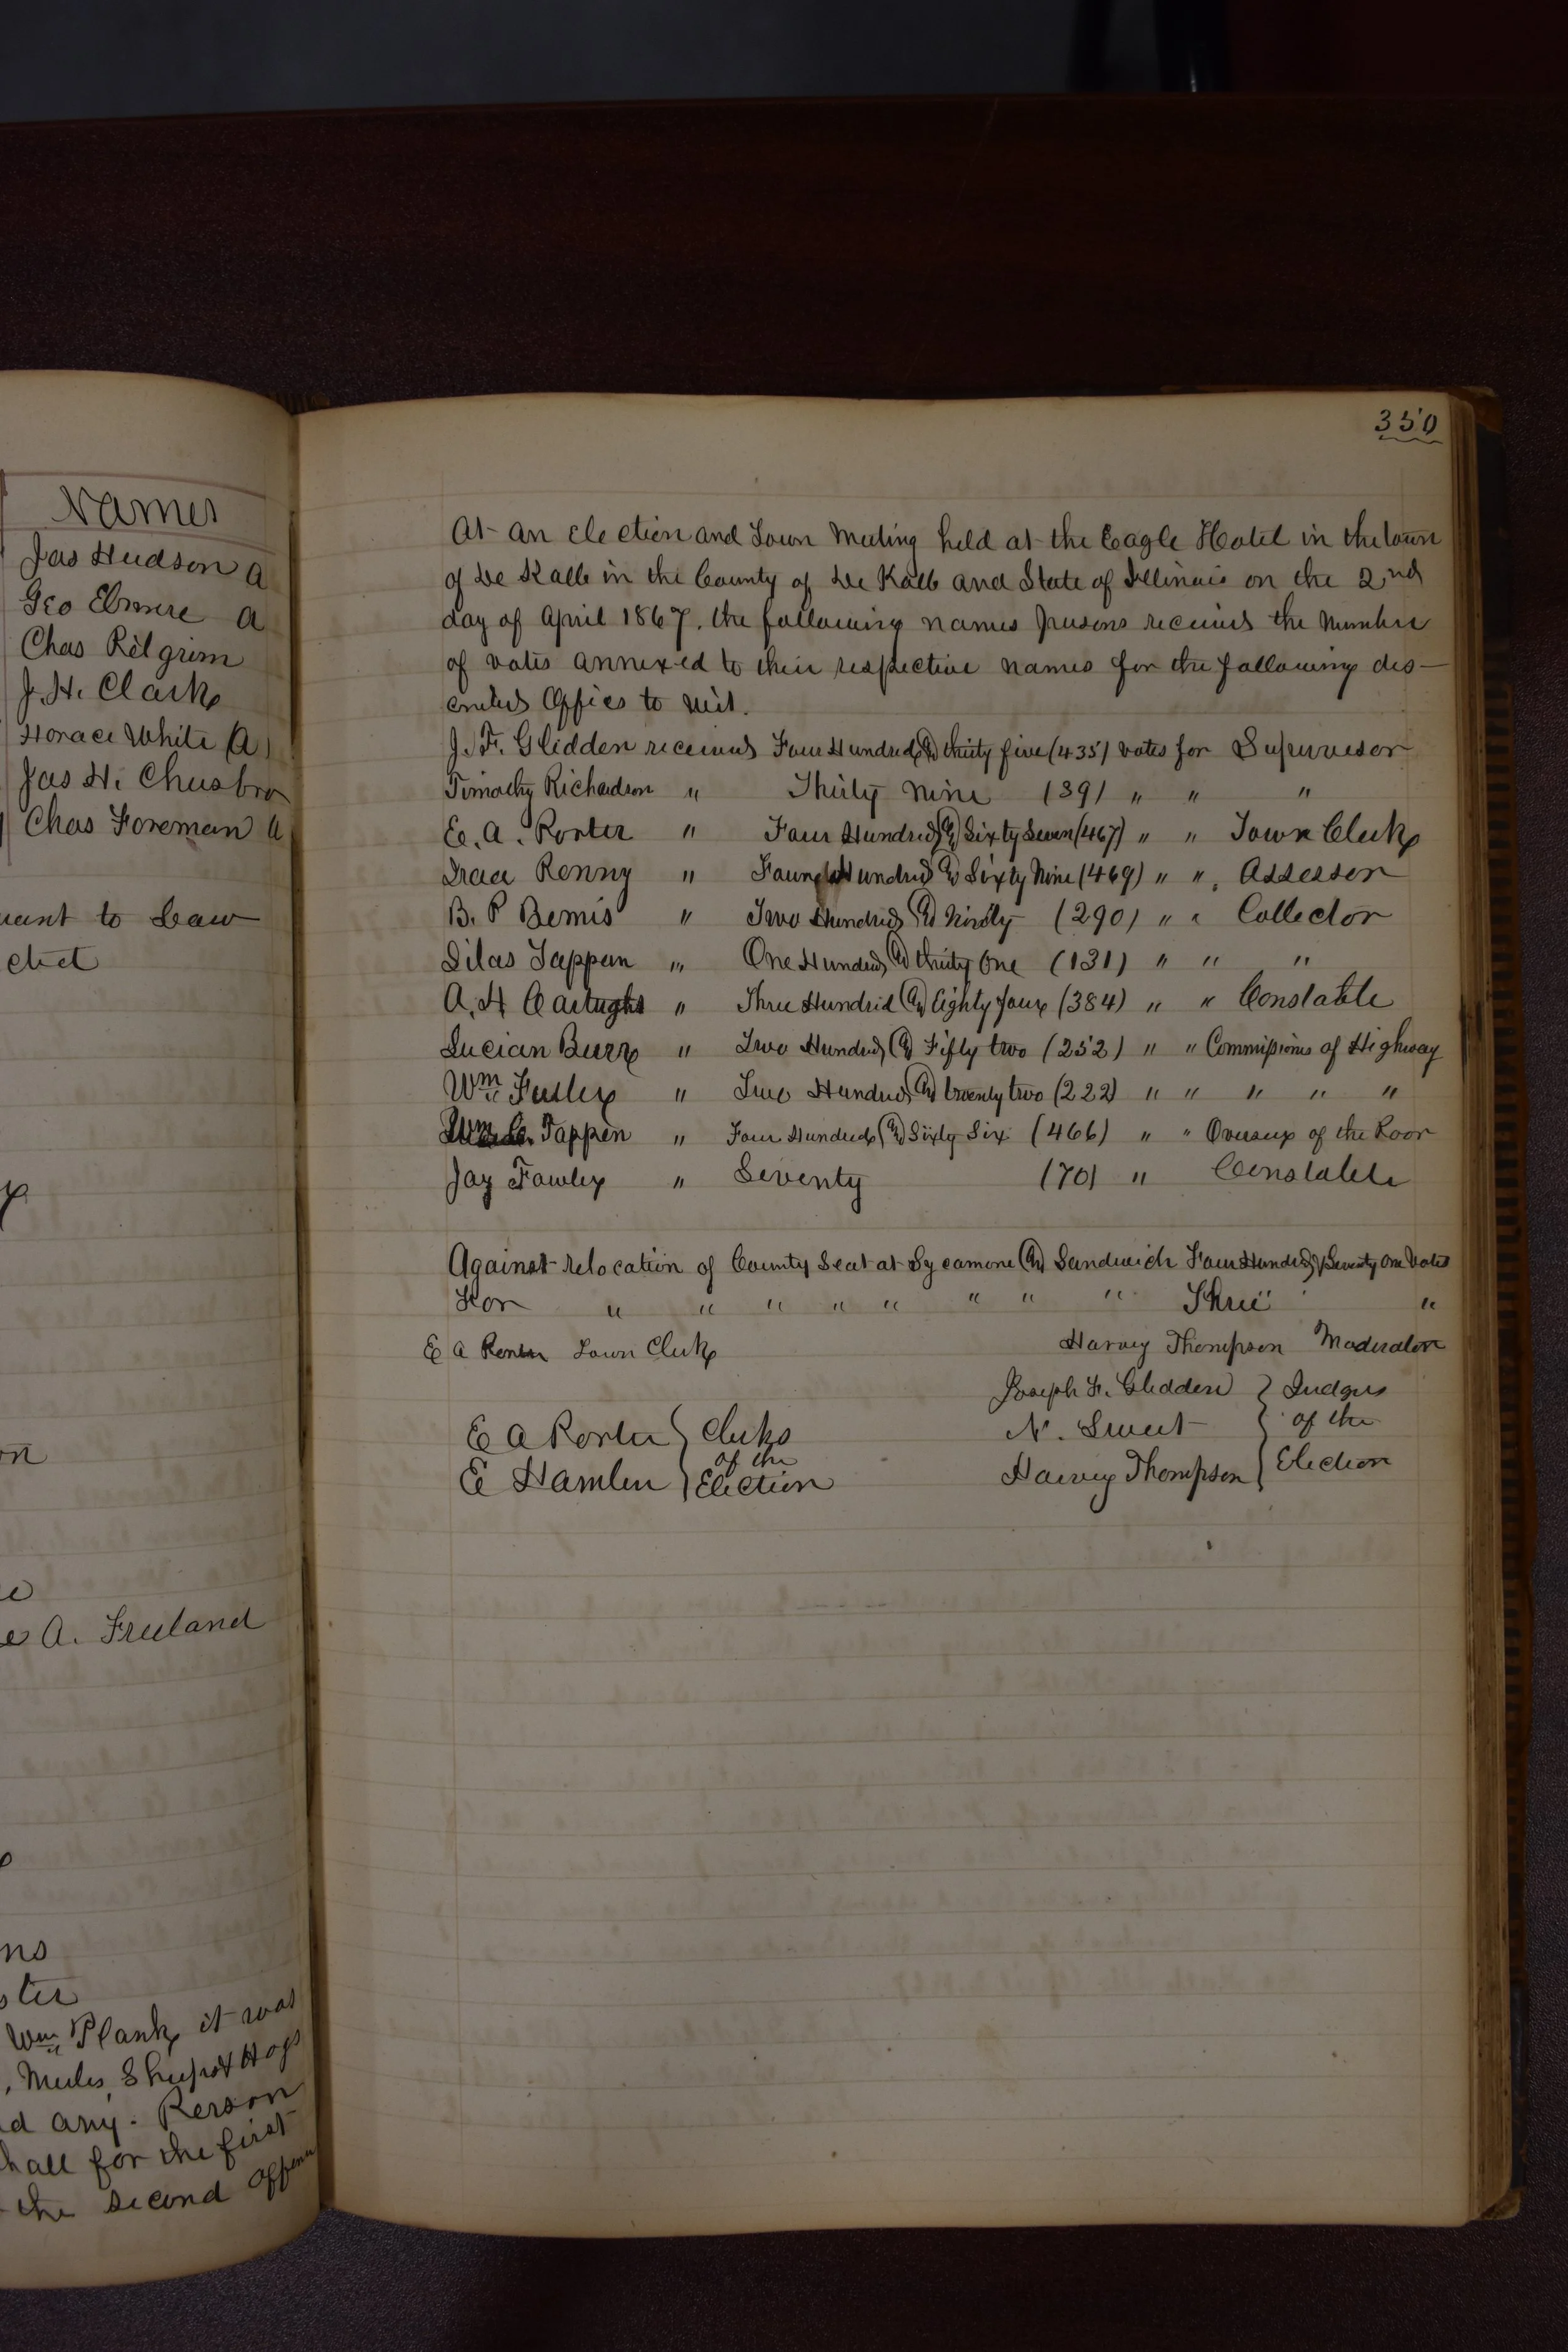 Names
Jas Hudson a
Geo Elmore a
Chas Pilgrim
J. H. Clark
Horace White (a)
Jas H.
Chas Foreman a
to Law
A. Freeland
Wm Plank it was
, Mules, Sheep & Hogs
any. Person
for the first
the second
350
At an election and Town Meeting held at the Eagle Hotel in the town
of De Kalb in the County of De Kalb and State of Illinois on the 2nd
day of April 1867. the following names persons received the number
of votes annexed to their respective names for the following des-
cribed offices to wit.
J. F. Glidden received Four Hundred & thirty five (435) votes for Supervisor
Timothy Richardson " Thirty Nine (39) " " "
E. A. Porter " Four Hundred & Sixty Seven (467) " " Town Clerk
Penny " Four Hundred & Sixty Nine (469) " " Assessor
B. P Bemis " Two Hundred & Ninety (290) " " Collector
Silas Tappan " One Hundred & thirty One (131) " " "
A. H " Three Hundred & Eighty four (384) " " Constable
Lucian Burr " Two Hundred & Fifty two (252) " " Commissioner of Highway
Wm Fuller " Two Hundred & twenty two (222) " " " " "
Wm C. Tappen " Four Hundred & Sixty Six (466) " " Overseer of the Poor
Jay Fowler " Seventy (70) " Constable
Against relocation of County Seat at Sycamore & Sandwich Four Hundred & Seventy One Votes
For " " " " " " " " Three "
E A Porter Town Clerk Harvey Thompson Moderator
E A Porter } Clerks
of the
E Hamlin } Election
Joseph F. Glidden } Judges
N. Sweet } of the
Harvey Thompson } Election